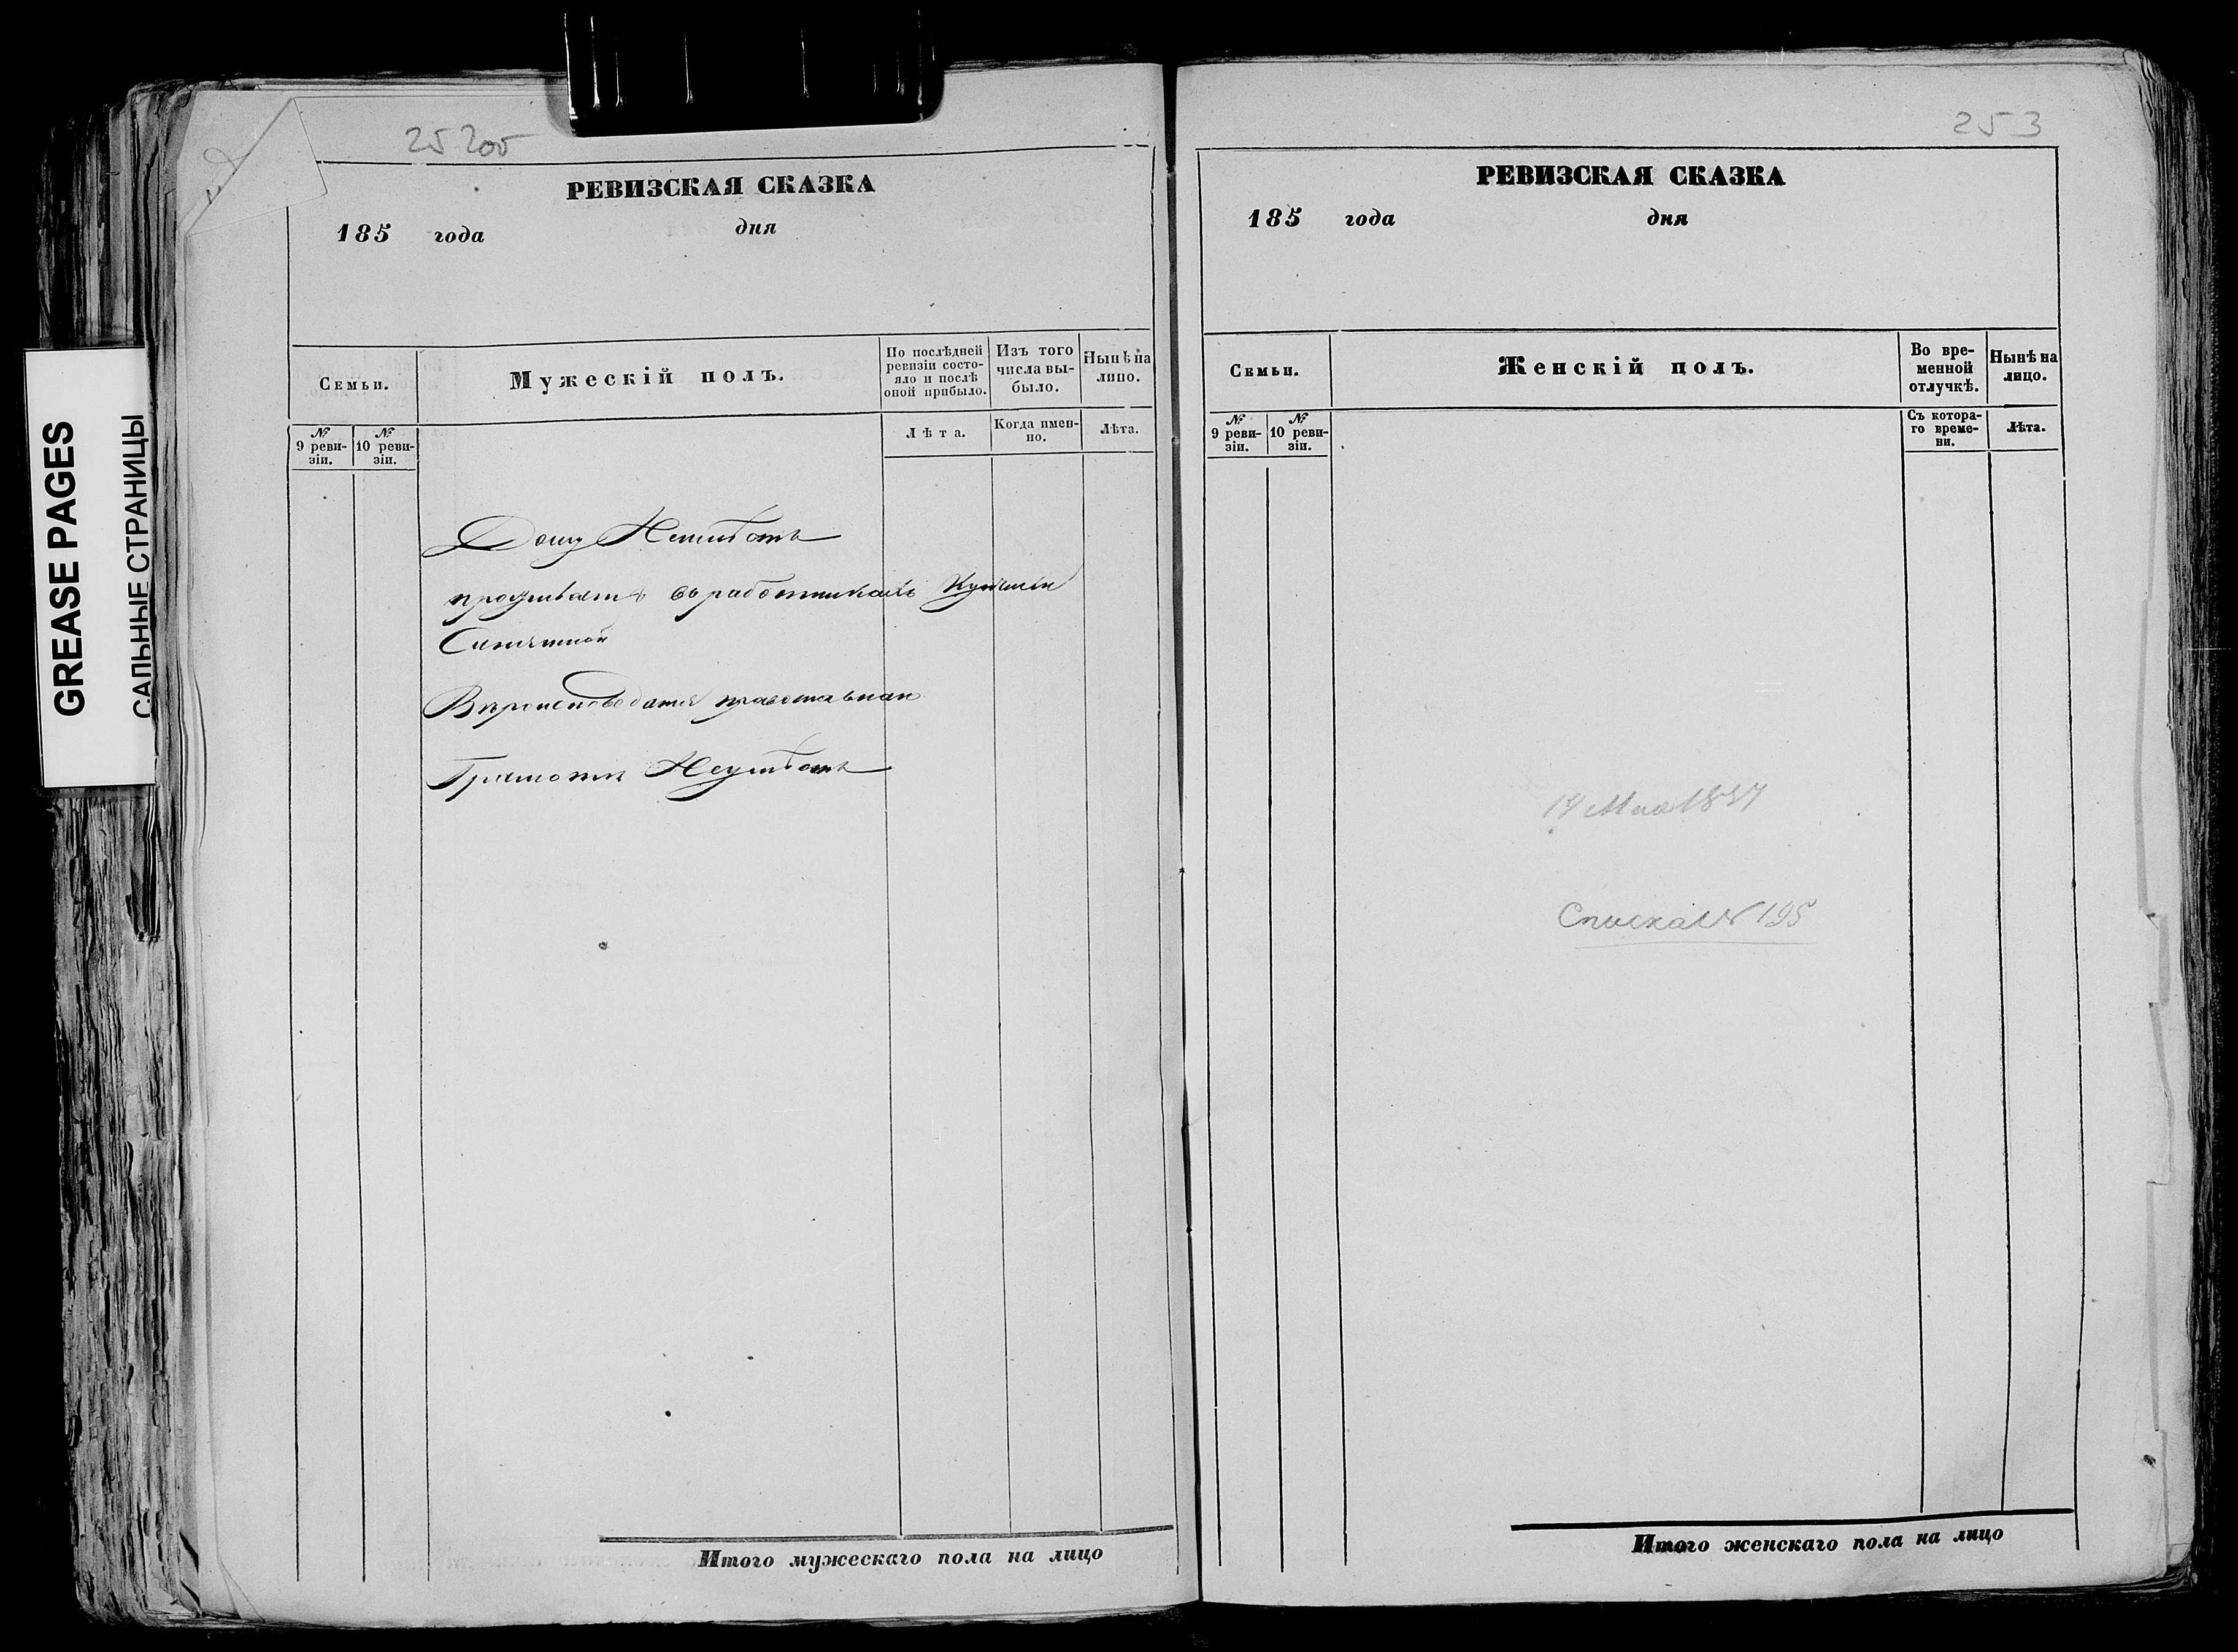 GREASE PAGES
САЛЬНЫЕ СТРАНИЦЫ
РЕВИЗСКАЯ СКАЗКА
185 года дня
Семьи.
Мужескій полъ.
По послѣдней ревизіи состояло и послѣ оной прибыло.
Изъ того числа выбыло.
Нынѣ на лицо.
№ 9 ревизіи.
№ 10 ревизіи.
Лѣта.
Когда именно.
Лѣта.
Дому Неимѣетъ
проживаетъ въ работникахъ
Вѣроисповеданія православнаго
Грамотѣ Неумѣетъ
Итого мужескаго пола на лицо
253
РЕВИЗСКАЯ СКАЗКА
185 года дня
Семьи.
Женскій полъ.
Во временной отлучкѣ.
Нынѣ на лицо.
№ 9 ревизіи.
№ 10 ревизіи.
Съ котораго времени.
Лѣта.
Списка № 195
Итого женскаго пола на лицо